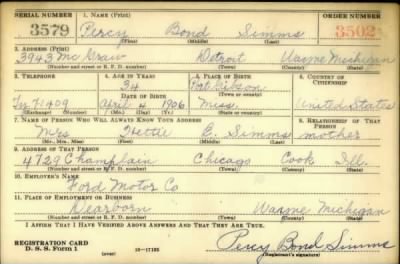 SERIAL NUMBER 1. NAME (Print) ORDER NUMBER
3579 Percy Bond Simms 3502
(First) (Middle) (Last)
2. ADDRESS (Print)
3943 McGraw Detroit Wayne Michigan
(Number and street or R. F. D. number) (Town) (County) (State)
3. TELEPHONE 4. AGE IN YEARS 5. PLACE OF BIRTH 6. COUNTRY OF CITIZENSHIP
34 Port Gibson
DATE OF BIRTH (Town or county)
Ty. 71409 April 4 1906 Miss. United States
(Exchange) (Number) (Mo.) (Day) (Yr.) (State or country)
7. NAME OF PERSON WHO WILL ALWAYS KNOW YOUR ADDRESS 8. RELATIONSHIP OF THAT PERSON
Mrs Hettie E. Simms mother
(Mr., Mrs., Miss) (First) (Middle) (Last)
9. ADDRESS OF THAT PERSON
4729 Champlain Chicago Cook Ill.
(Number and street or R. F. D. number) (Town) (County) (State)
10. EMPLOYER'S NAME
Ford Motor Co
11. PLACE OF EMPLOYMENT OR BUSINESS
Dearborn Wayne Michigan
(Number and street or R. F. D. number) (Town) (County) (State)
I AFFIRM THAT I HAVE VERIFIED ABOVE ANSWERS AND THAT THEY ARE TRUE.
REGISTRATION CARD
D. S. S. Form 1 (over) 16-17105 Percy Bond Simms
(Registrant's signature)